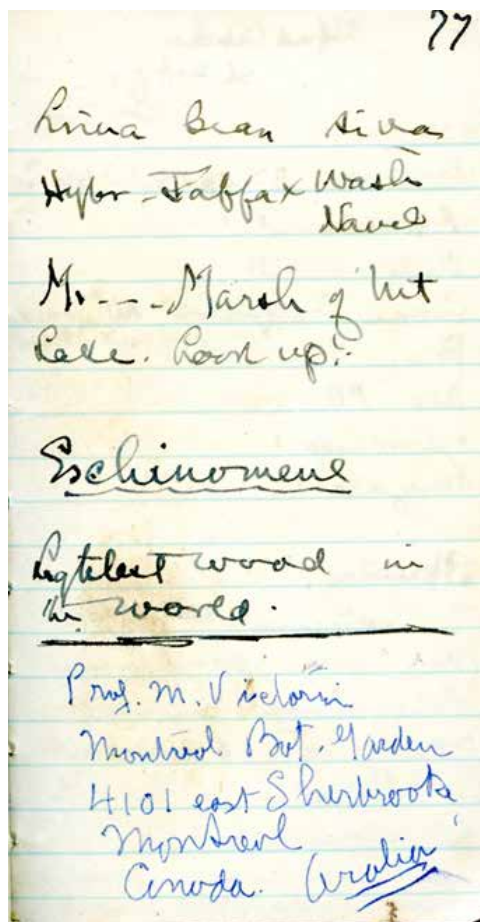 77
Lima bean
Hybr - Faffax Wash
Navel
Mr --- Marsh of Mt
Lake. Look up!
Eschinomene
Ligtelest wood in
the world.
Prof. M. Victorin
Montreal Bot. Garden
4101 east Sherbrooke
Montreal
Canada. Aralia